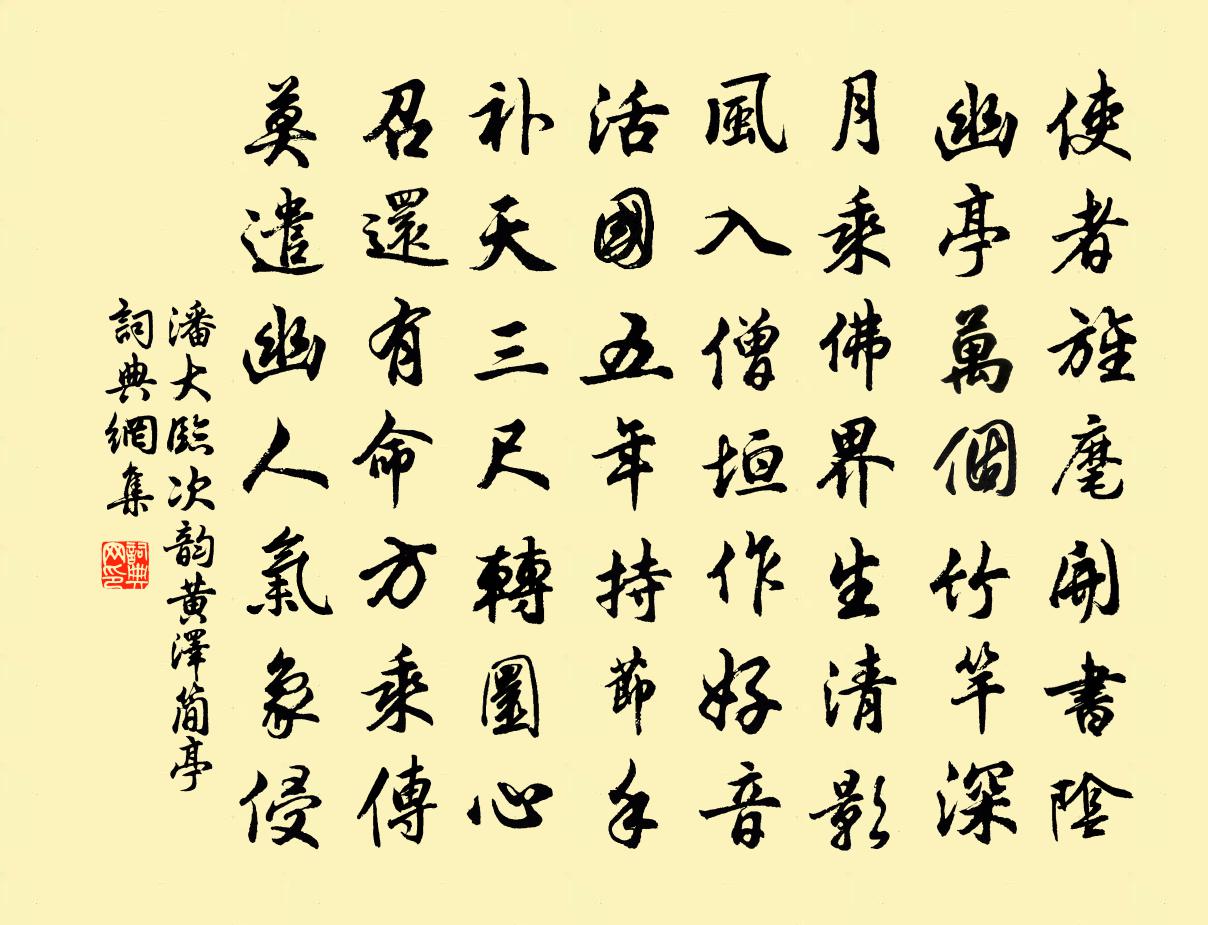 使者旌麾開書陰
幽亭萬個竹竿深
月乘佛界生清影
風入僧垣作好音
活國五年持節手
补天三尺轉圜心
召還有命方乘傳
莫遣幽人氣象侵
潘大臨次韵黄澤簡亭
詞典網集